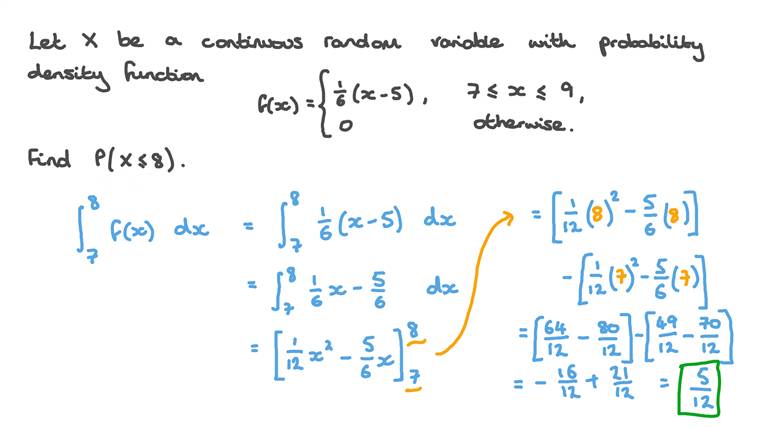 Let X be a continuous random variable with probability
density function
f(x) = { 1/6 (x-5), 7 ≤ x ≤ 9,
0 otherwise.
Find P(X ≤ 8).
∫₇⁸ f(x) dx = ∫₇⁸ 1/6 (x-5) dx
= ∫₇⁸ 1/6 x - 5/6 dx
= [1/12 x² - 5/6 x]₇⁸
= [1/12 (8)² - 5/6 (8)]
- [1/12 (7)² - 5/6 (7)]
= [64/12 - 80/12] - [49/12 - 70/12]
= - 16/12 + 21/12 = 5/12